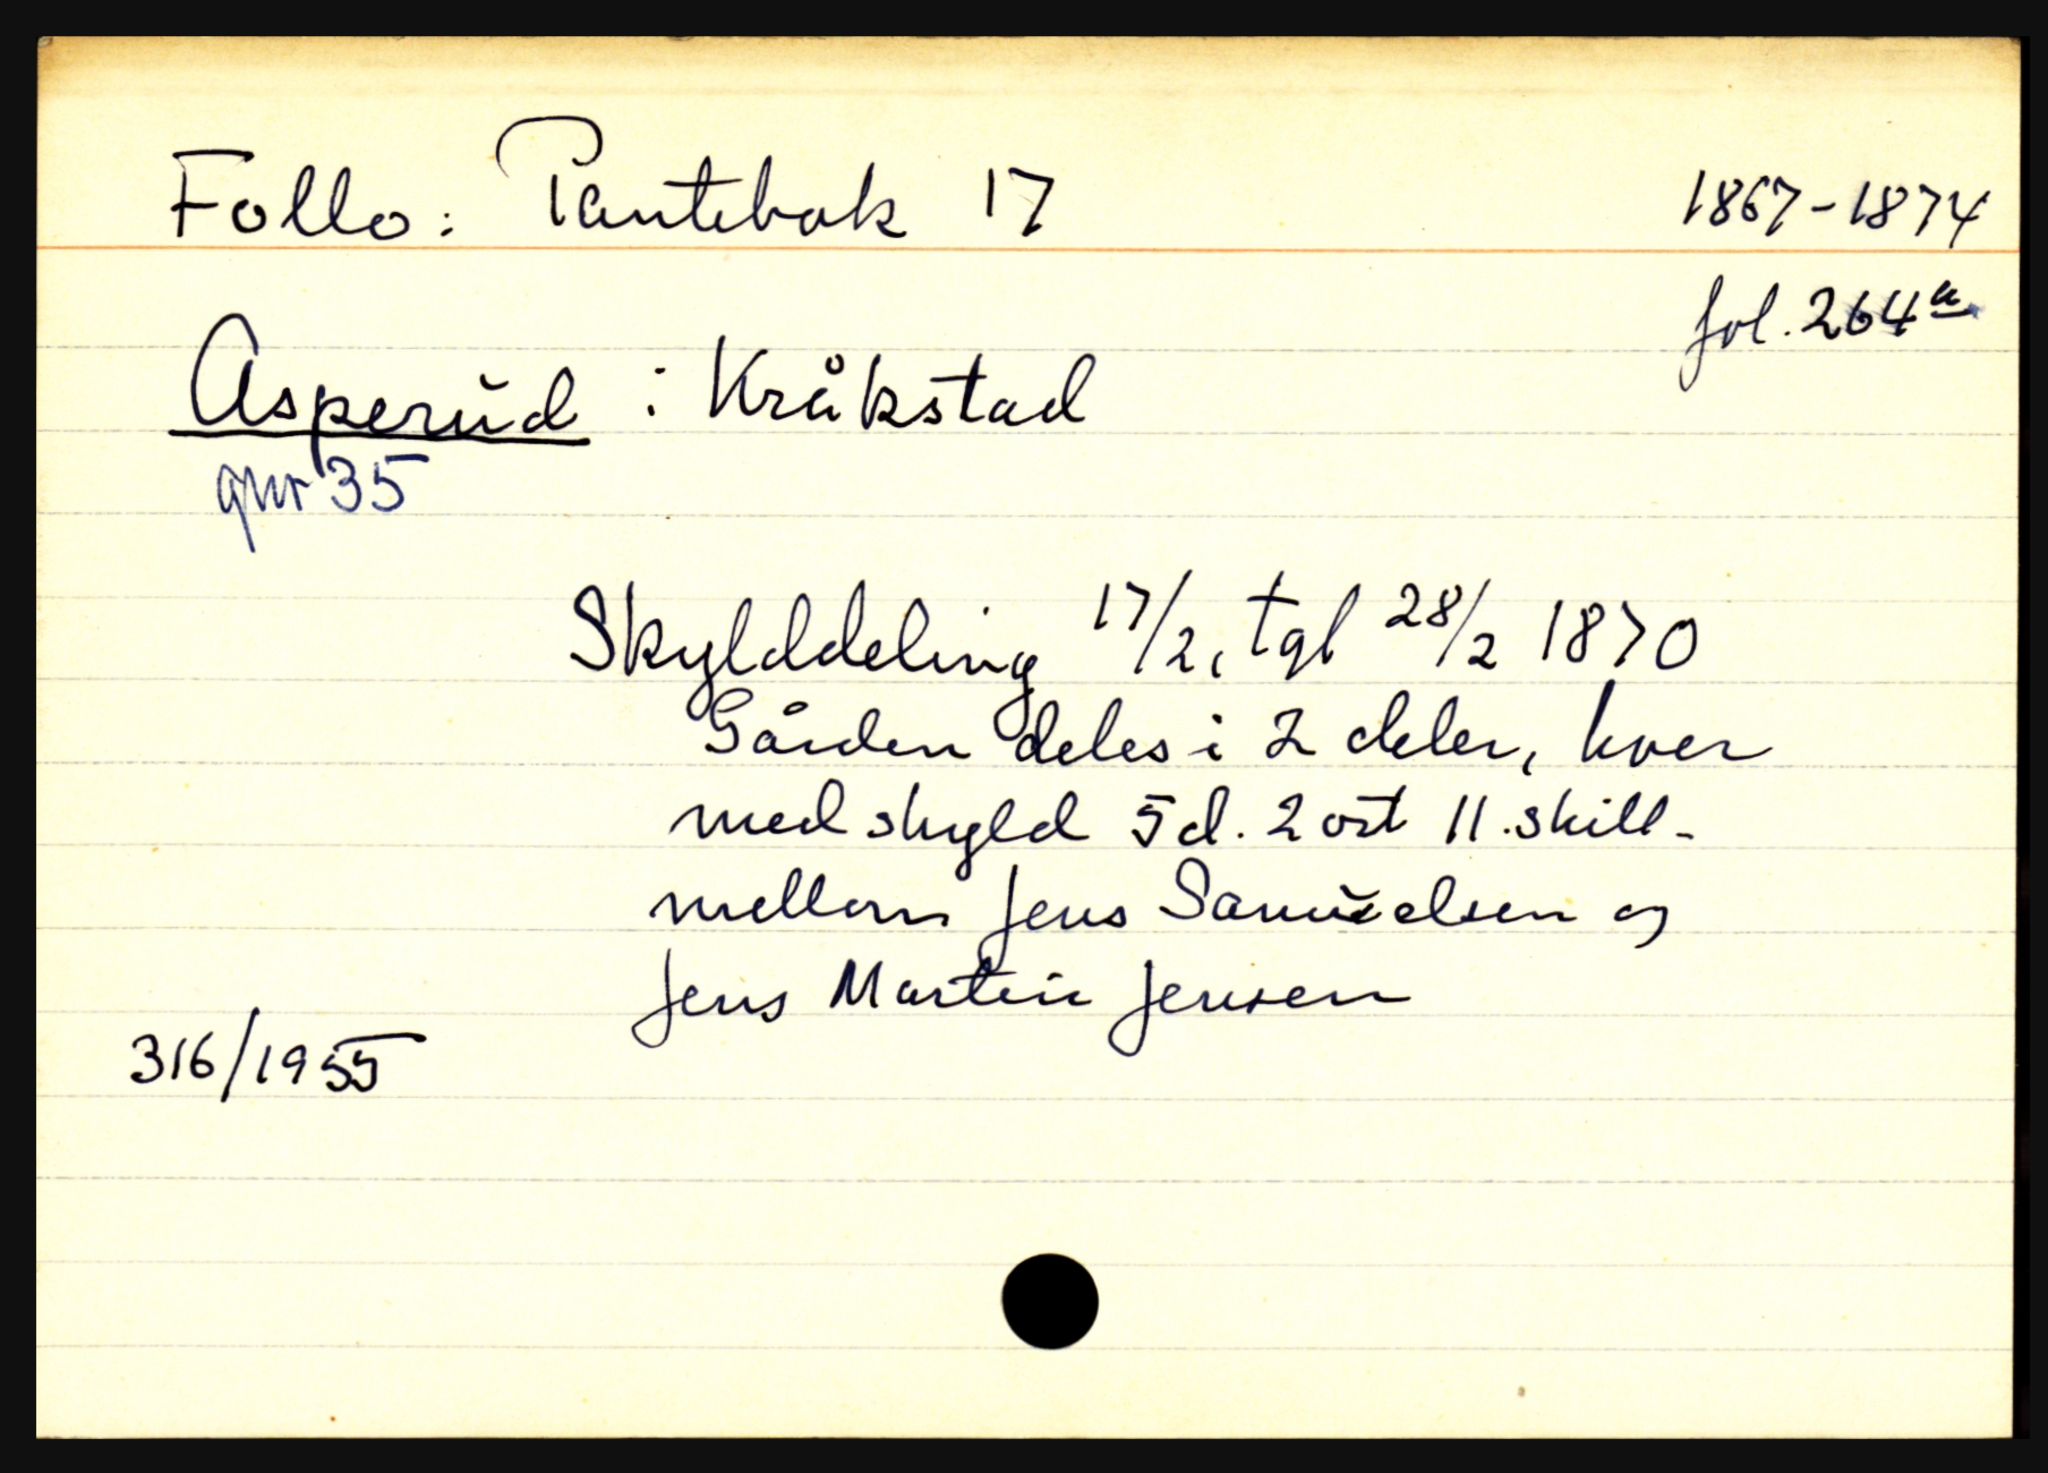 Follo: Pantebok 17 1867-1874
fol. 264a
Asperud i Kråkstad
gnr 35
Skylddeling 17/2, tgl 28/2 1870
Gården deles i 2 deler, hver
med skyld 5 d. 2 ort 11. skill.
mellom Jens Samuelsen og
Jens Martin Jensen
316/1955